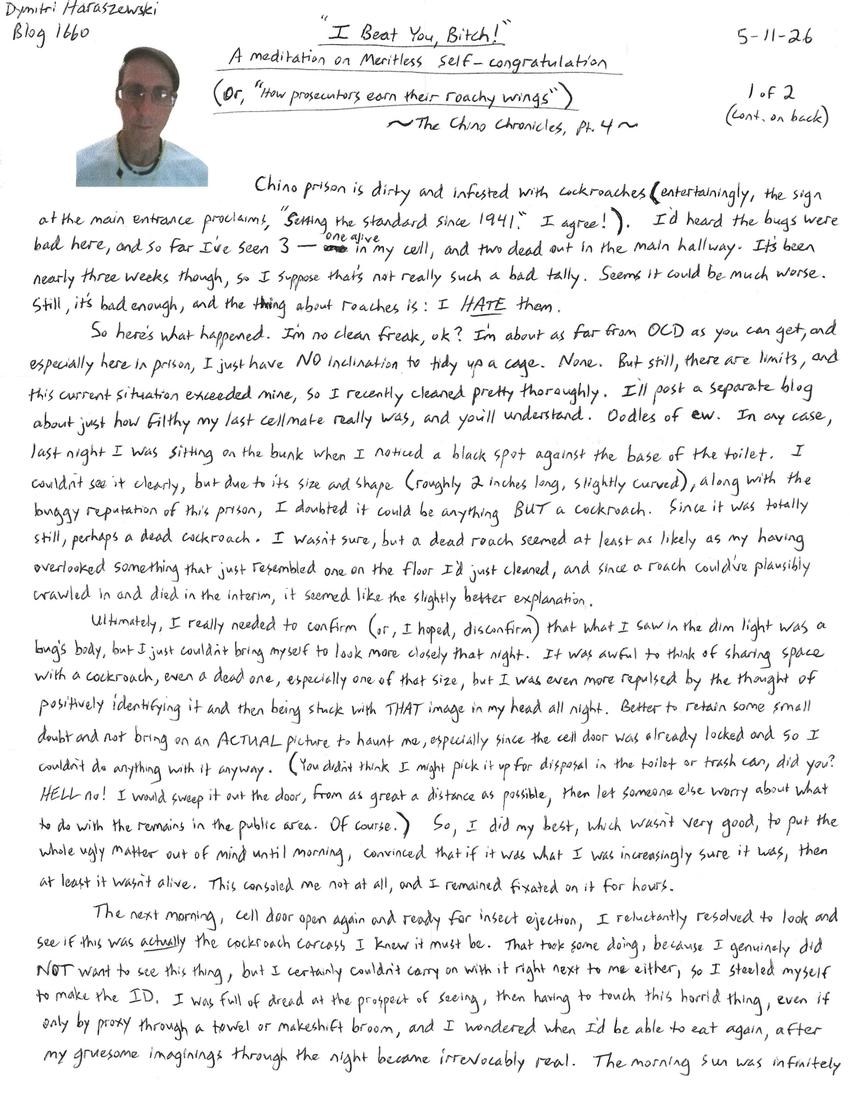 Dymitri Haraszewski
Blog 1660
"I Beat You, Bitch!"
5-11-26
A meditation on Meritless self-congratulation
(Or, "How prosecutors earn their roachy wings")
1 of 2
(cont. on back)
~The Chino Chronicles, pt. 4~
Chino prison is dirty and infested with cockroaches (entertainingly, the sign
at the main entrance proclaims, "Setting the standard since 1941." I agree!). I'd heard the bugs were
bad here, and so far I've seen 3 — one alive in my cell, and two dead out in the main hallway. It's been
nearly three weeks though, so I suppose that's not really such a bad tally. Seems it could be much worse.
Still, it's bad enough, and the thing about roaches is: I HATE them.
So here's what happened. I'm no clean freak, ok? I'm about as far from OCD as you can get, and
especially here in prison, I just have NO inclination to tidy up a cage. None. But still, there are limits, and
this current situation exceeded mine, so I recently cleaned pretty thoroughly. I'll post a separate blog
about just how filthy my last cellmate really was, and you'll understand. Oodles of ew. In any case,
last night I was sitting on the bunk when I noticed a black spot against the base of the toilet. I
couldn't see it clearly, but due to its size and shape (roughly 2 inches long, slightly curved), along with the
buggy reputation of this prison, I doubted it could be anything BUT a cockroach. Since it was totally
still, perhaps a dead cockroach. I wasn't sure, but a dead roach seemed at least as likely as my having
overlooked something that just resembled one on the floor I'd just cleaned, and since a roach could've plausibly
crawled in and died in the interim, it seemed like the slightly better explanation.
Ultimately, I really needed to confirm (or, I hoped, disconfirm) that what I saw in the dim light was a
bug's body, but I just couldn't bring myself to look more closely that night. It was awful to think of sharing space
with a cockroach, even a dead one, especially one of that size, but I was even more repulsed by the thought of
positively identifying it and then being stuck with THAT image in my head all night. Better to retain some small
doubt and not bring on an ACTUAL picture to haunt me, especially since the cell door was already locked and so I
couldn't do anything with it anyway. (You didn't think I might pick it up for disposal in the toilet or trash can, did you?
HELL no! I would sweep it out the door, from as great a distance as possible, then let someone else worry about what
to do with the remains in the public area. Of course.) So, I did my best, which wasn't very good, to put the
whole ugly matter out of mind until morning, convinced that if it was what I was increasingly sure it was, then
at least it wasn't alive. This consoled me not at all, and I remained fixated on it for hours.
The next morning, cell door open again and ready for insect ejection, I reluctantly resolved to look and
see if this was actually the cockroach carcass I knew it must be. That took some doing, because I genuinely did
NOT want to see this thing, but I certainly couldn't carry on with it right next to me either, so I steeled myself
to make the ID. I was full of dread at the prospect of seeing, then having to touch this horrid thing, even if
only by proxy through a towel or makeshift broom, and I wondered when I'd be able to eat again, after
my gruesome imaginings through the night became irrevocably real. The morning sun was infinitely